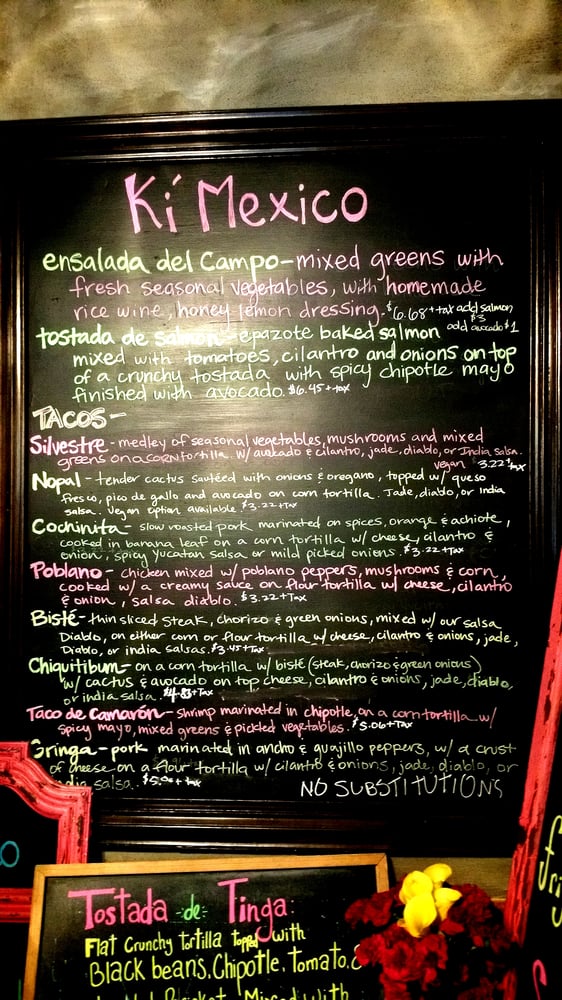 Kí Mexico
ensalada del Campo-mixed greens with
fresh seasonal vegetables, with homemade
rice wine, honey lemon dressing. $6.68+tax add salmon $3
tostada de salmon epazote baked salmon add avocado $1
mixed with tomatoes, cilantro and onions on top
of a crunchy tostada with spicy chipotle mayo
finished with avocado. $6.45+tax
TACOS-
Silvestre - medley of seasonal vegetables, mushrooms and mixed
greens on a corn tortilla. w/ avocado & cilantro, jade, diablo, or India salsa.
vegan $3.22+tax
Nopal - tender cactus sautéed with onions & oregano, topped w/ queso
fresco, pico de gallo and avocado on corn tortilla. Jade, diablo, or India
salsa. Vegan option available. $3.22+tax
Cochinita - slow roasted pork marinated on spices, orange & achiote,
cooked in banana leaf on a corn tortilla w/ cheese, cilantro &
onion, spicy Yucatan salsa or mild picked onions. $3.22+Tax
Poblano - chicken mixed w/ poblano peppers, mushrooms & corn,
cooked w/ a creamy sauce on flour tortilla w/ cheese, cilantro
& onion, salsa diablo. $3.22+Tax
Bisté - thin sliced steak, chorizo & green onions, mixed w/ our salsa
Diablo, on either corn or flour tortilla w/ cheese, cilantro & onions, jade,
Diablo, or india salsas. $3.45+Tax
Chiquitibum - on a corn tortilla w/ bisté (steak, chorizo & green onions)
w/ cactus & avocado on top cheese, cilantro & onions, jade, diablo,
or india salsa. $4.83+Tax
Taco de Camarón - shrimp marinated in chipotle, on a corn tortilla w/
spicy mayo, mixed greens & pickled vegetables. $5.06+Tax
Gringa - pork marinated in ancho & guajillo peppers, w/ a crust
of cheese on a flour tortilla w/ cilantro & onions, jade, diablo, or
salsa.
NO SUBSTITUTIONS
Tostada de Tinga:
Flat Crunchy tortilla topped with
Black beans, Chipotle, Tomato, &
Mixed with